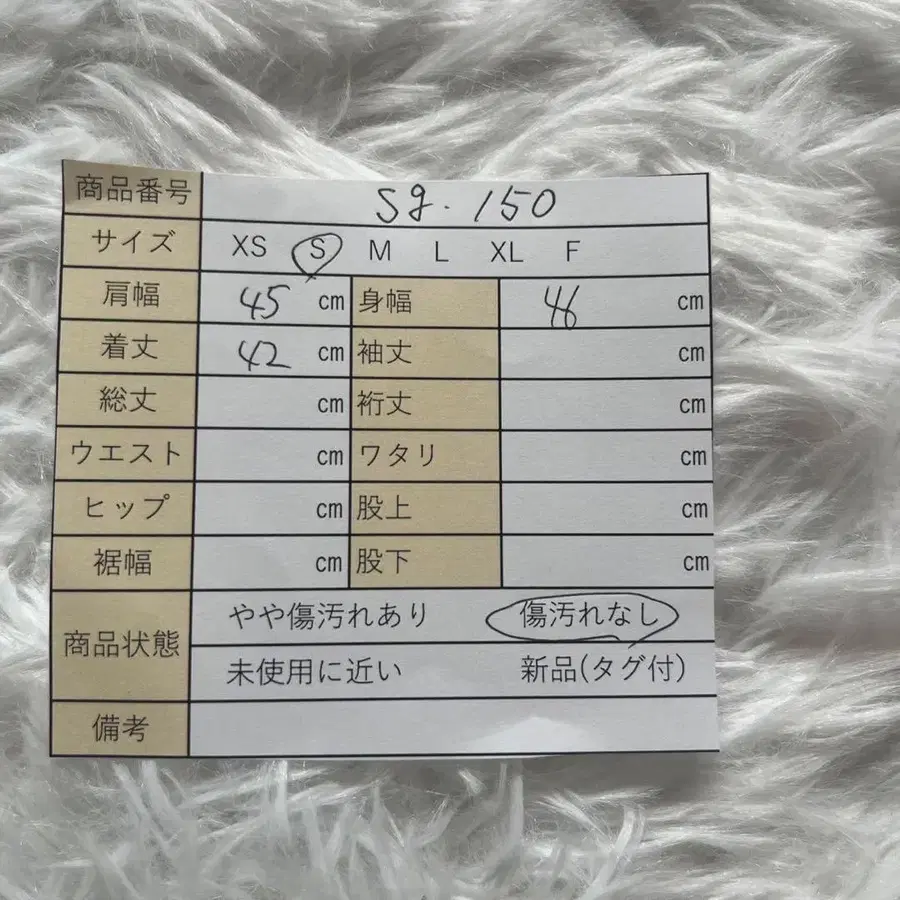 商品番号 Sg. 150
サイズ XS S M L XL F
肩幅 45 cm 身幅 46 cm
着丈 42 cm 袖丈 cm
総丈 cm 裄丈 cm
ウエスト cm ワタリ cm
ヒップ cm 股上 cm
裾幅 cm 股下 cm
商品状態 やや傷汚れあり 傷汚れなし
未使用に近い 新品(タグ付)
備考